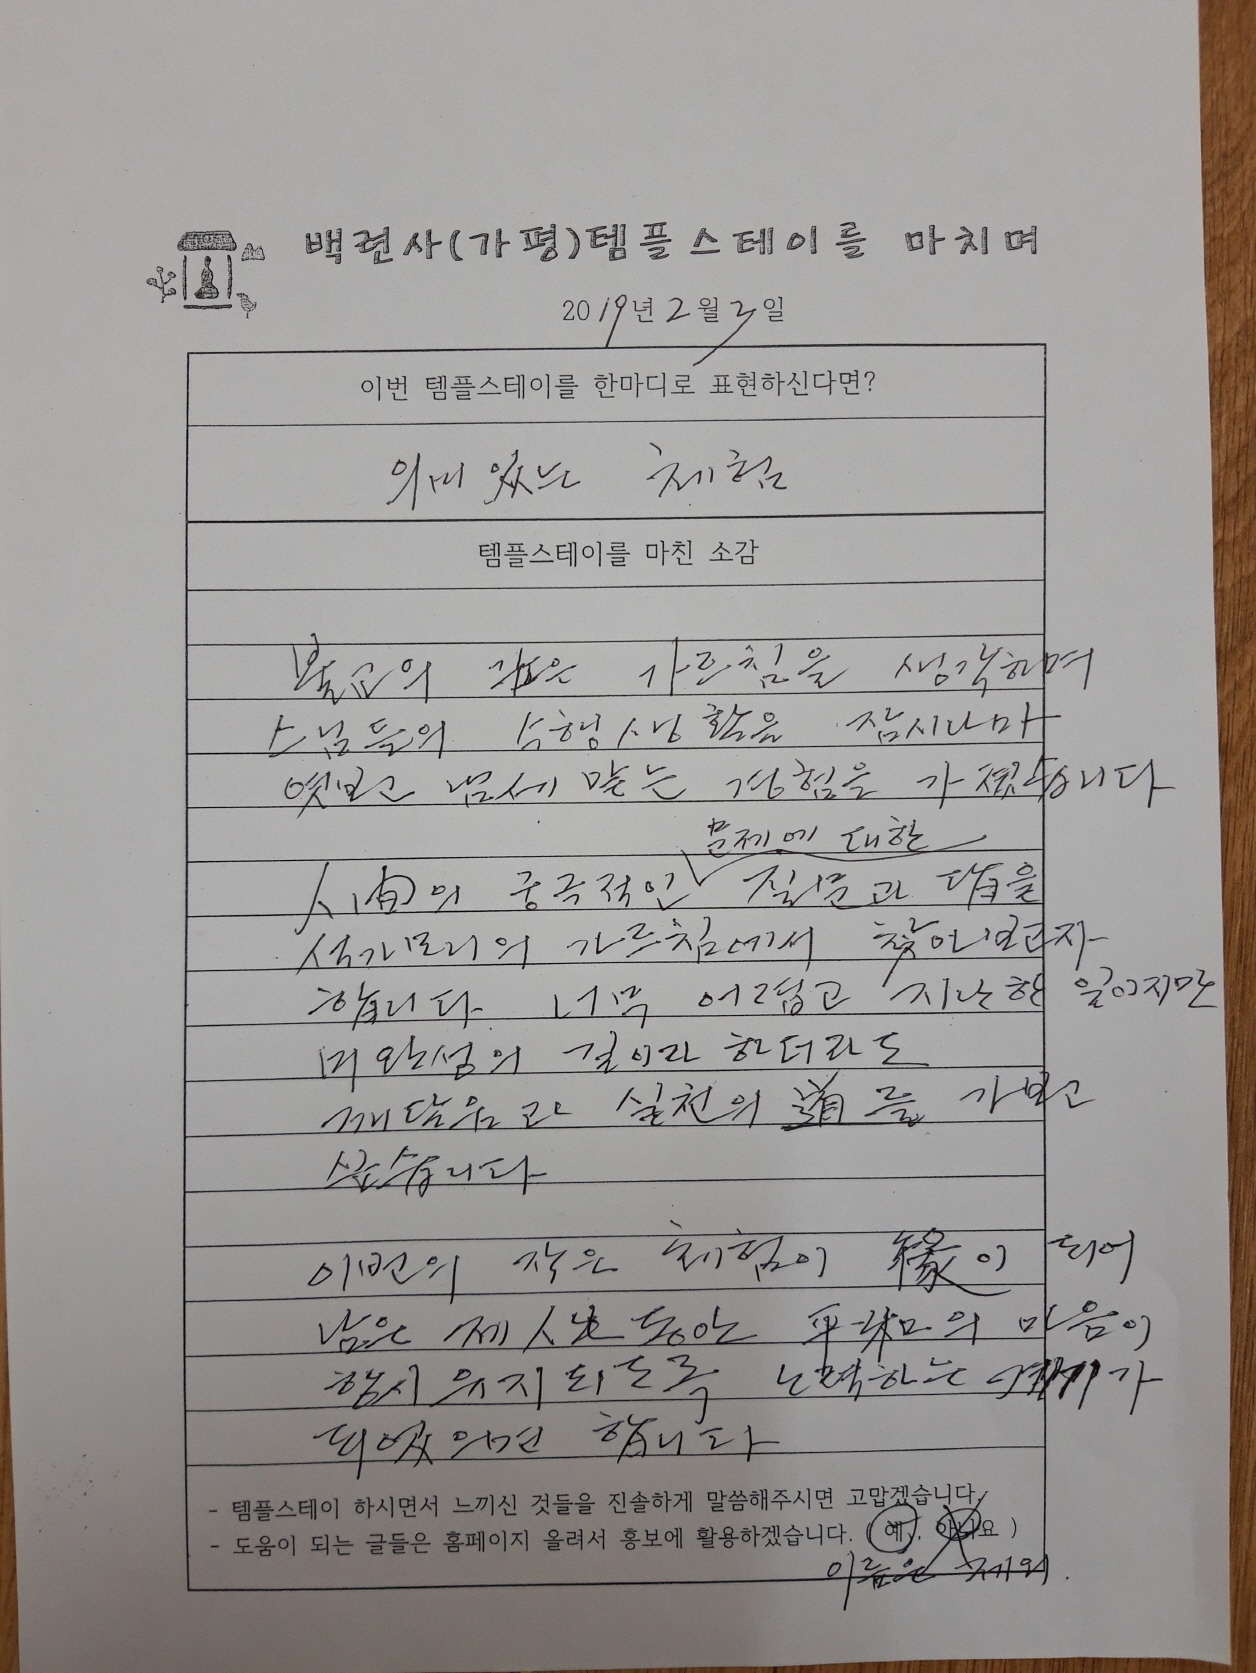 백련사(가평)템플스테이를 마치며
2019년 2월 3일
이번 템플스테이를 한마디로 표현하신다면?
의미있는 체험
템플스테이를 마친 소감
불교의 가르침을 생각하며
스님들의 수행생활을 잠시나마
엿보고 냄새 맡는 경험을 가졌습니다
문제에 대한
人間의 궁극적인 질문과 답을
석가모니의 가르침에서 찾아보고자
합니다 너무 어렵고 지난한 일이지만
미완성의 길이라 하더라도
깨달음과 실천의 道를 가보고
싶습니다
이번의 작은 체험이 緣이 되어
남은 제 人生동안 平和의 마음이
항시 유지되도록 노력하는 계기가
되었으면 합니다
- 템플스테이 하시면서 느끼신 것들을 진솔하게 말씀해주시면 고맙겠습니다.
- 도움이 되는 글들은 홈페이지 올려서 홍보에 활용하겠습니다. ( 예 . 아니요 )
이름은 제외.